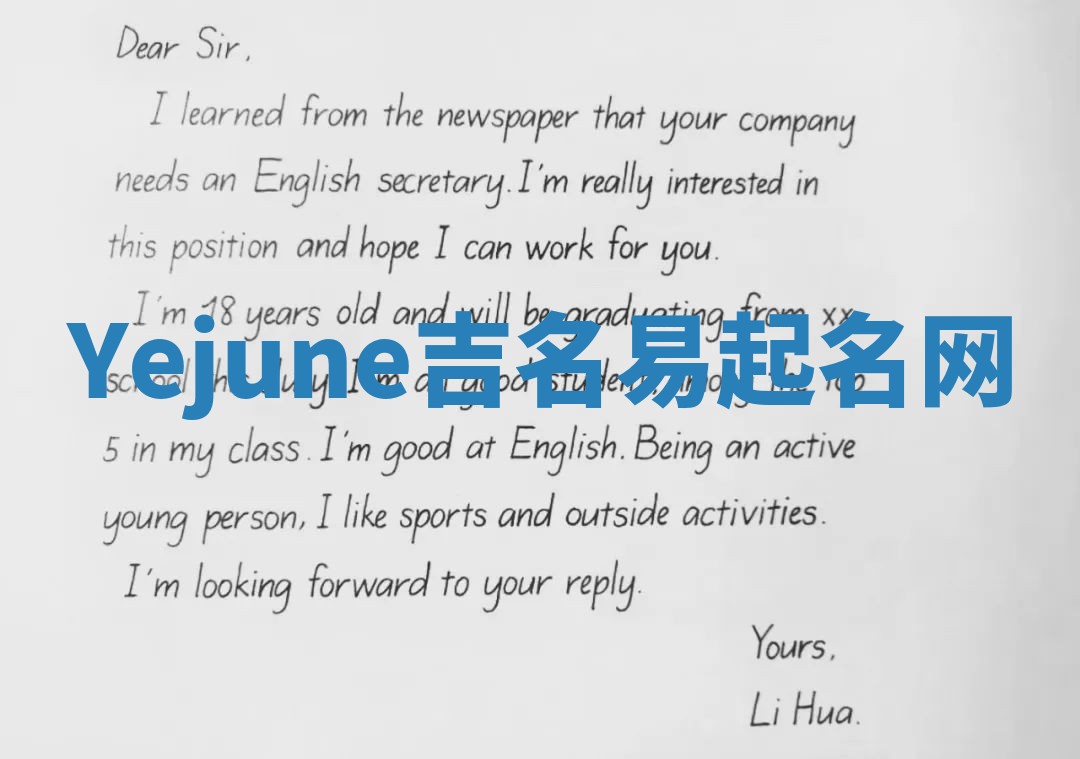 Dear Sir,
I learned from the newspaper that your company
needs an English secretary. I'm really interested in
this position and hope I can work for you.
I'm 18 years old and will be graduating from xx
Yejune吉名易起名网
school this July. I'm a good student, among the top
5 in my class. I'm good at English. Being an active
young person, I like sports and outside activities.
I'm looking forward to your reply.
Yours,
Li Hua.